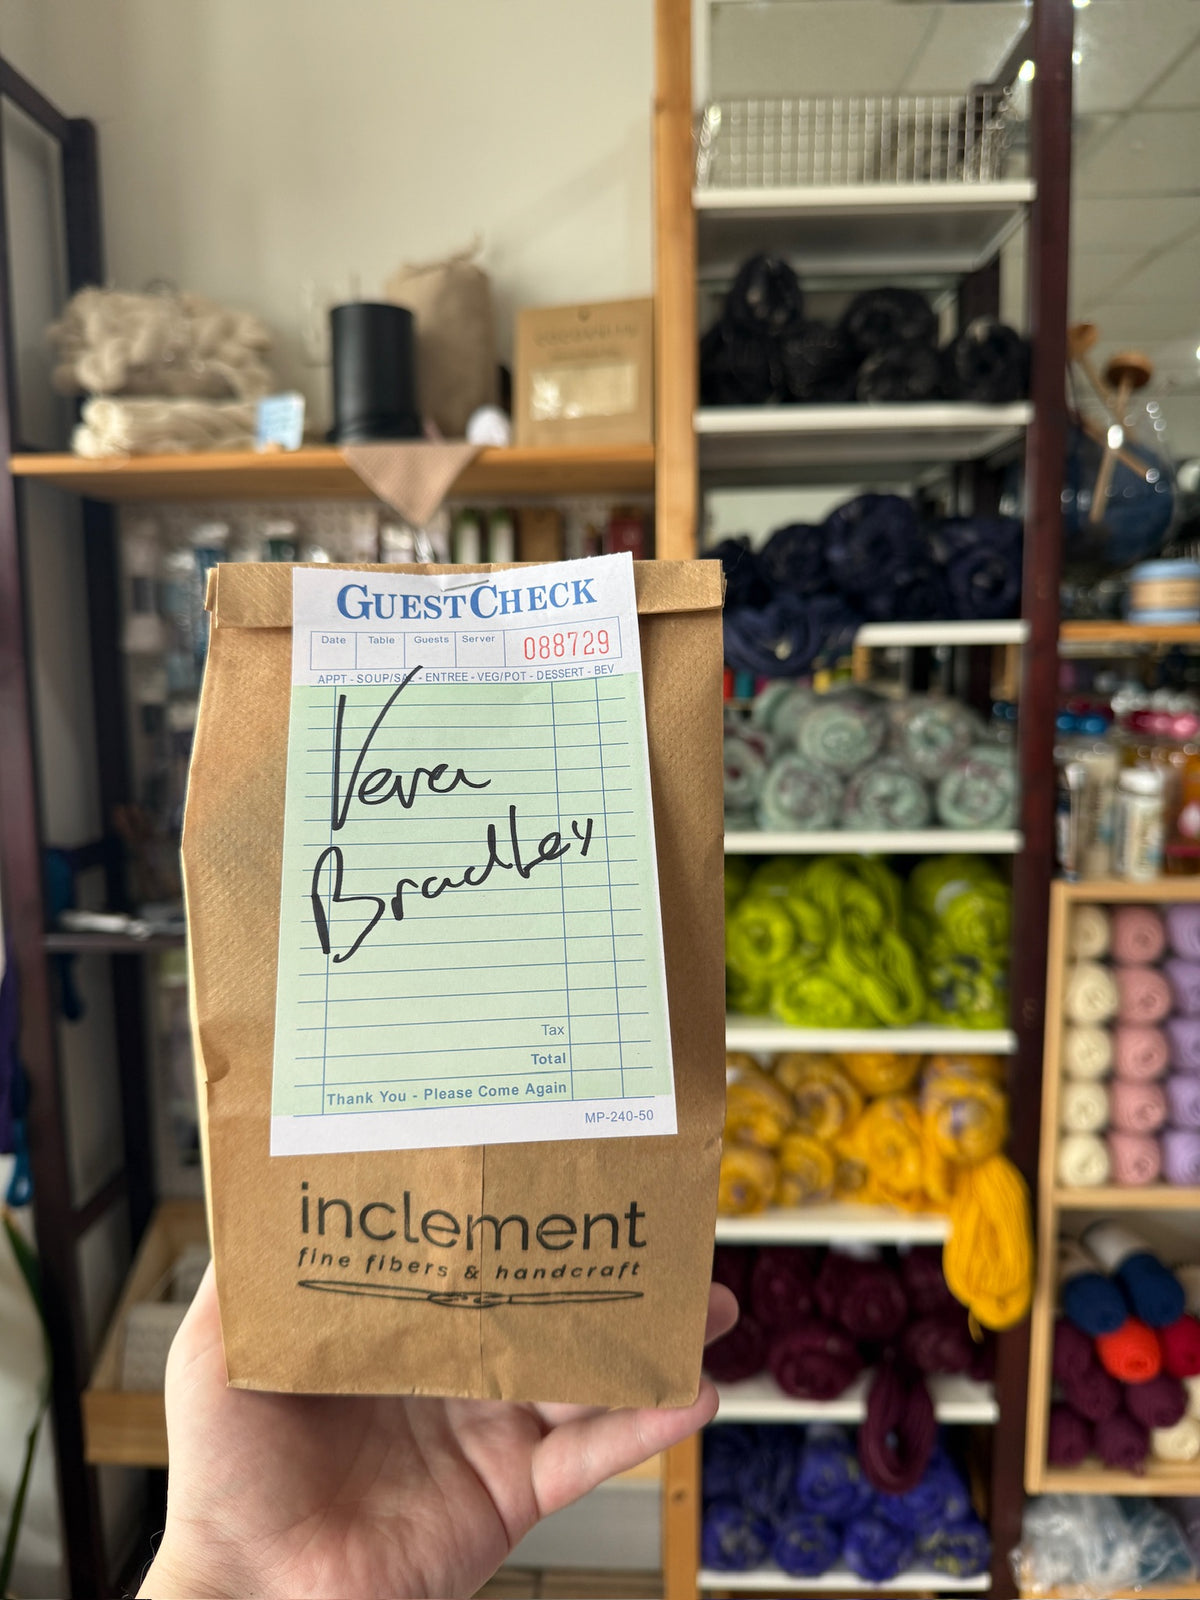 GUESTCHECK
Date Table Guests Server 088729
APPT - SOUP/SAL - ENTREE - VEG/POT - DESSERT - BEV
Vera
Bradley
Tax
Total
Thank You - Please Come Again
MP-240-50
inclement
fine fibers & handcraft